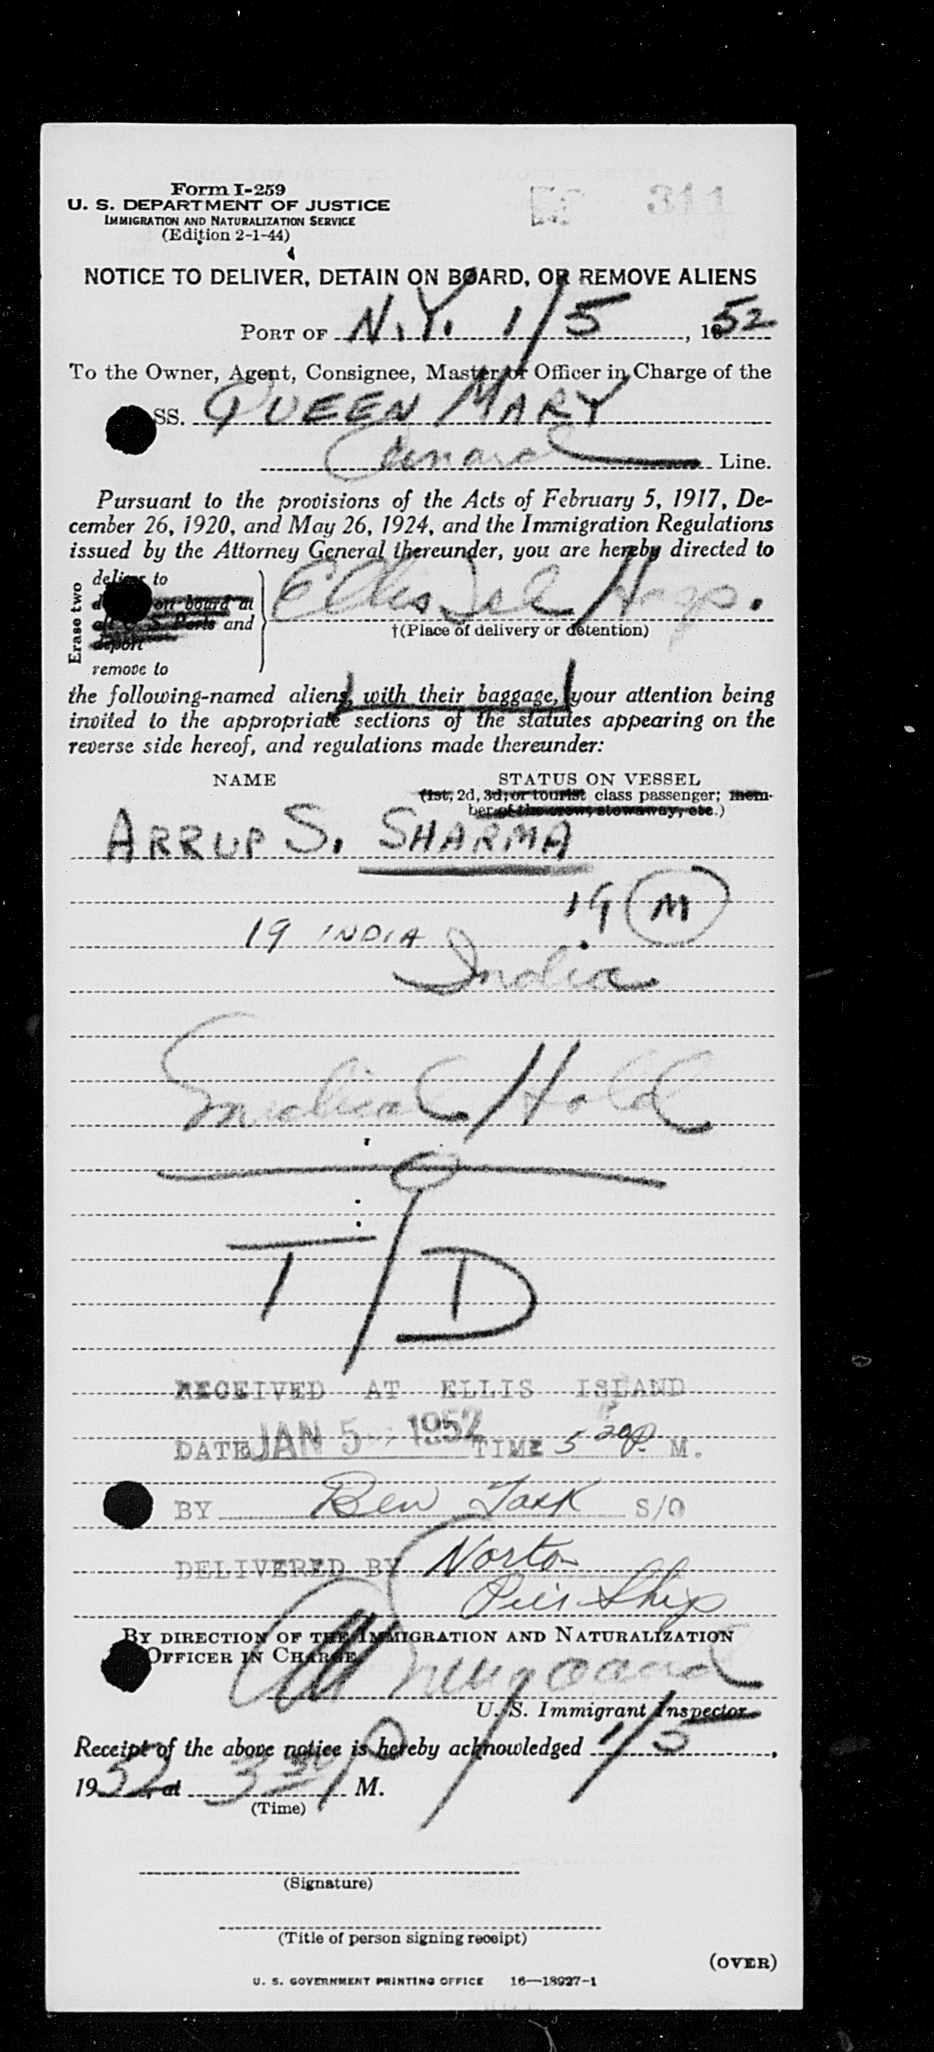 Form I-259
311
U. S. DEPARTMENT OF JUSTICE
IMMIGRATION AND NATURALIZATION SERVICE
(Edition 2-1-44)
NOTICE TO DELIVER, DETAIN ON BOARD, OR REMOVE ALIENS
PORT OF N.Y. 1/5, 1952
To the Owner, Agent, Consignee, Master or Officer in Charge of the
SS. QUEEN MARY
Cunard Line.
Pursuant to the provisions of the Acts of February 5, 1917, De-
cember 26, 1920, and May 26, 1924, and the Immigration Regulations
issued by the Attorney General thereunder, you are hereby directed to
Erase two
deliver to
on board at
S. Ports and
deport
remove to
Ellis Isl Hosp.
†(Place of delivery or detention)
the following-named aliens, with their baggage, your attention being
invited to the appropriate sections of the statutes appearing on the
reverse side hereof, and regulations made thereunder:
NAME STATUS ON VESSEL
(1st, 2d, 3d, or tourist class passenger; mem-
ber of the crew, stowaway, etc.)
ARRUP S. SHARMA
19 M
19 INDIA
India
Medical Hold
T/D
RECEIVED AT ELLIS ISLAND
DATE JAN 5 1952 TIME 5 20 P. M.
BY Ben Task S/O
DELIVERED BY Norton
Pier Ship
BY DIRECTION OF THE IMMIGRATION AND NATURALIZATION
OFFICER IN CHARGE
U. S. Immigrant Inspector
Receipt of the above notice is hereby acknowledged 1/5,
1952, at 3 30 P M.
(Time)
(Signature)
(Title of person signing receipt)
(OVER)
U. S. GOVERNMENT PRINTING OFFICE 16—18927-1